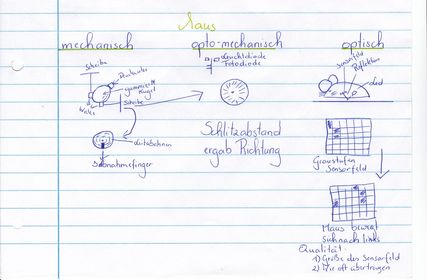 Maus
mechanisch
opto-mechanisch
optisch
Scheibe
gummierte
Kugel
Scheibe
Leitbahnen
Abnahmefinger
Leuchtdiode
Fotodiode
Schlitzabstand
ergab Richtung
Sensorfeld
Reflektion
Led
Graustufen
Sensorfeld
Maus bewegt
sich nach links
Qualität:
1) Größe des Sensorfeld
2) Wie oft übertragen